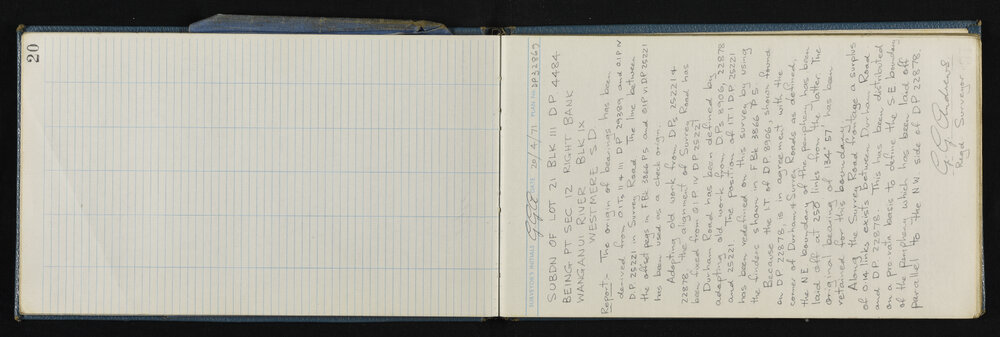 20
SURVEYOR'S INITIALS GGA DATE 20/4/71 PLAN No. DP32869
SUBDN OF LOT 21 BLK III DP 4484
BEING PT SEC 12 RIGHT BANK
WANGANUI RIVER BLK IX
WESTMERE S D
Report:- The origin of bearings has been
derived from OITs II & III DP 29389 and OIP IV
D.P. 25221 in Surrey Road. The line between
the offset pegs in F.Bk 3866 P5 and OIP V DP 25221
has been used as a check origin.
Adopting old work from DPs 25221 &
22878 the alignment of Surrey Road has
been fixed from OIP IV DP 25221
Durham Road has been defined by
adopting old work from DPs 8906, 22878
and 25221 The position of IT I DP 25221
has been redefined on this survey by using
the finders shown in F.Bk 3866 P5.
Because the IT of DP 8906, shown found
on DP 22878, is in agreement with the
corner of Durham & Surrey Roads as defined,
the NE boundary of the periphery has been
laid off at 250 links from the latter. The
original bearing of 134° 57' has been
retained for this boundary.
Along the Surrey Road frontage a surplus
of 0.14 links exists between Durham Road
and DP 22878. This has been distributed
on a pro-rata basis to define the SE boundary
of the periphery which has been laid off
parallel to the NW side of DP 22878.
G G Andrews
Regd Surveyor